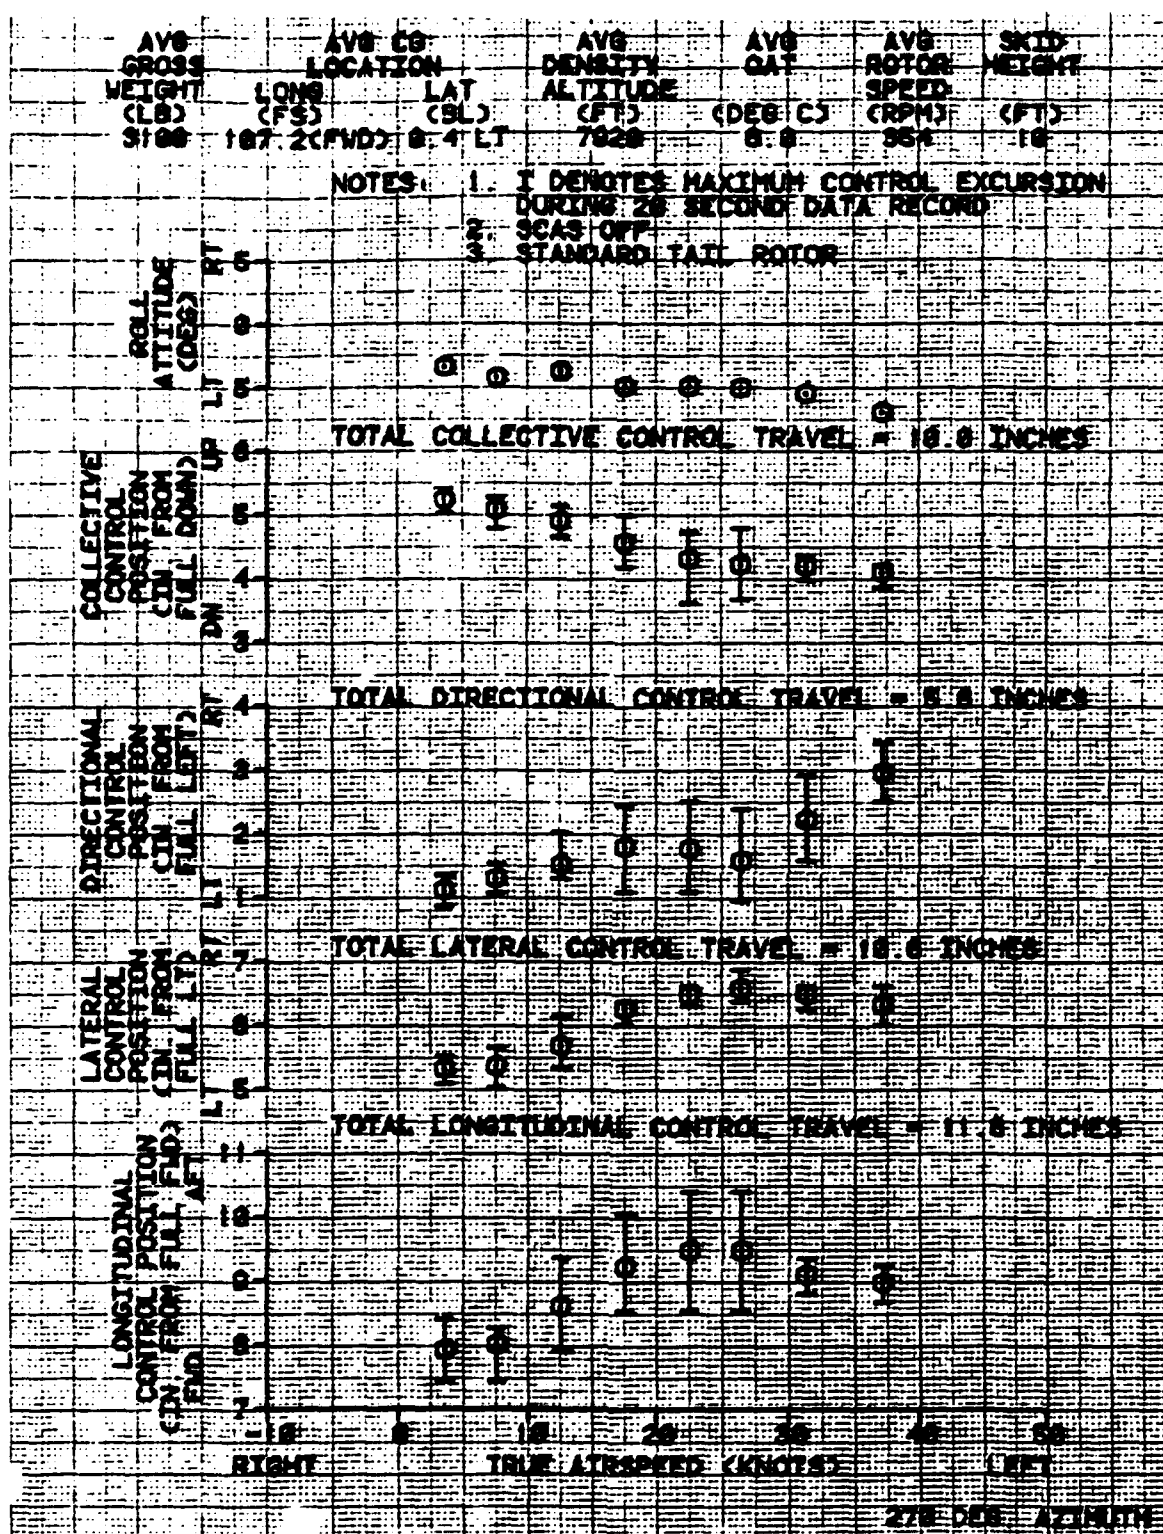 AVG AVG CG AVG AVG AVG SKID
GROSS LOCATION DENSITY OAT ROTOR HEIGHT
WEIGHT LONG LAT ALTITUDE SPEED
(LB) (FS) (BL) (FT) (DEG C) (RPM) (FT)
107.2(FWD) 0.4 LT 10
NOTES: 1. I DENOTES MAXIMUM CONTROL EXCURSION
DURING 20 SECOND DATA RECORD
2. SCAS OFF
3. STANDARD TAIL ROTOR
ROLL
ATTITUDE
(DEG)
LT RT
5 0 5
TOTAL COLLECTIVE CONTROL TRAVEL = 10.0 INCHES
COLLECTIVE
CONTROL
POSITION
(IN. FROM
FULL DOWN)
DN UP
6
5
4
3
TOTAL DIRECTIONAL CONTROL TRAVEL = INCHES
DIRECTIONAL
CONTROL
POSITION
(IN. FROM
FULL LEFT)
LT RT
4
3
2
1
TOTAL LATERAL CONTROL TRAVEL = INCHES
LATERAL
CONTROL
POSITION
(IN. FROM
FULL LT)
LT RT
7
6
5
TOTAL LONGITUDINAL CONTROL TRAVEL = INCHES
LONGITUDINAL
CONTROL POSITION
(IN. FROM FULL FWD)
FWD AFT
11
10
9
8
7
-10 0 10 20 30 40 50
RIGHT TRUE AIRSPEED (KNOTS) LEFT
270 DEG. AZIMUTH